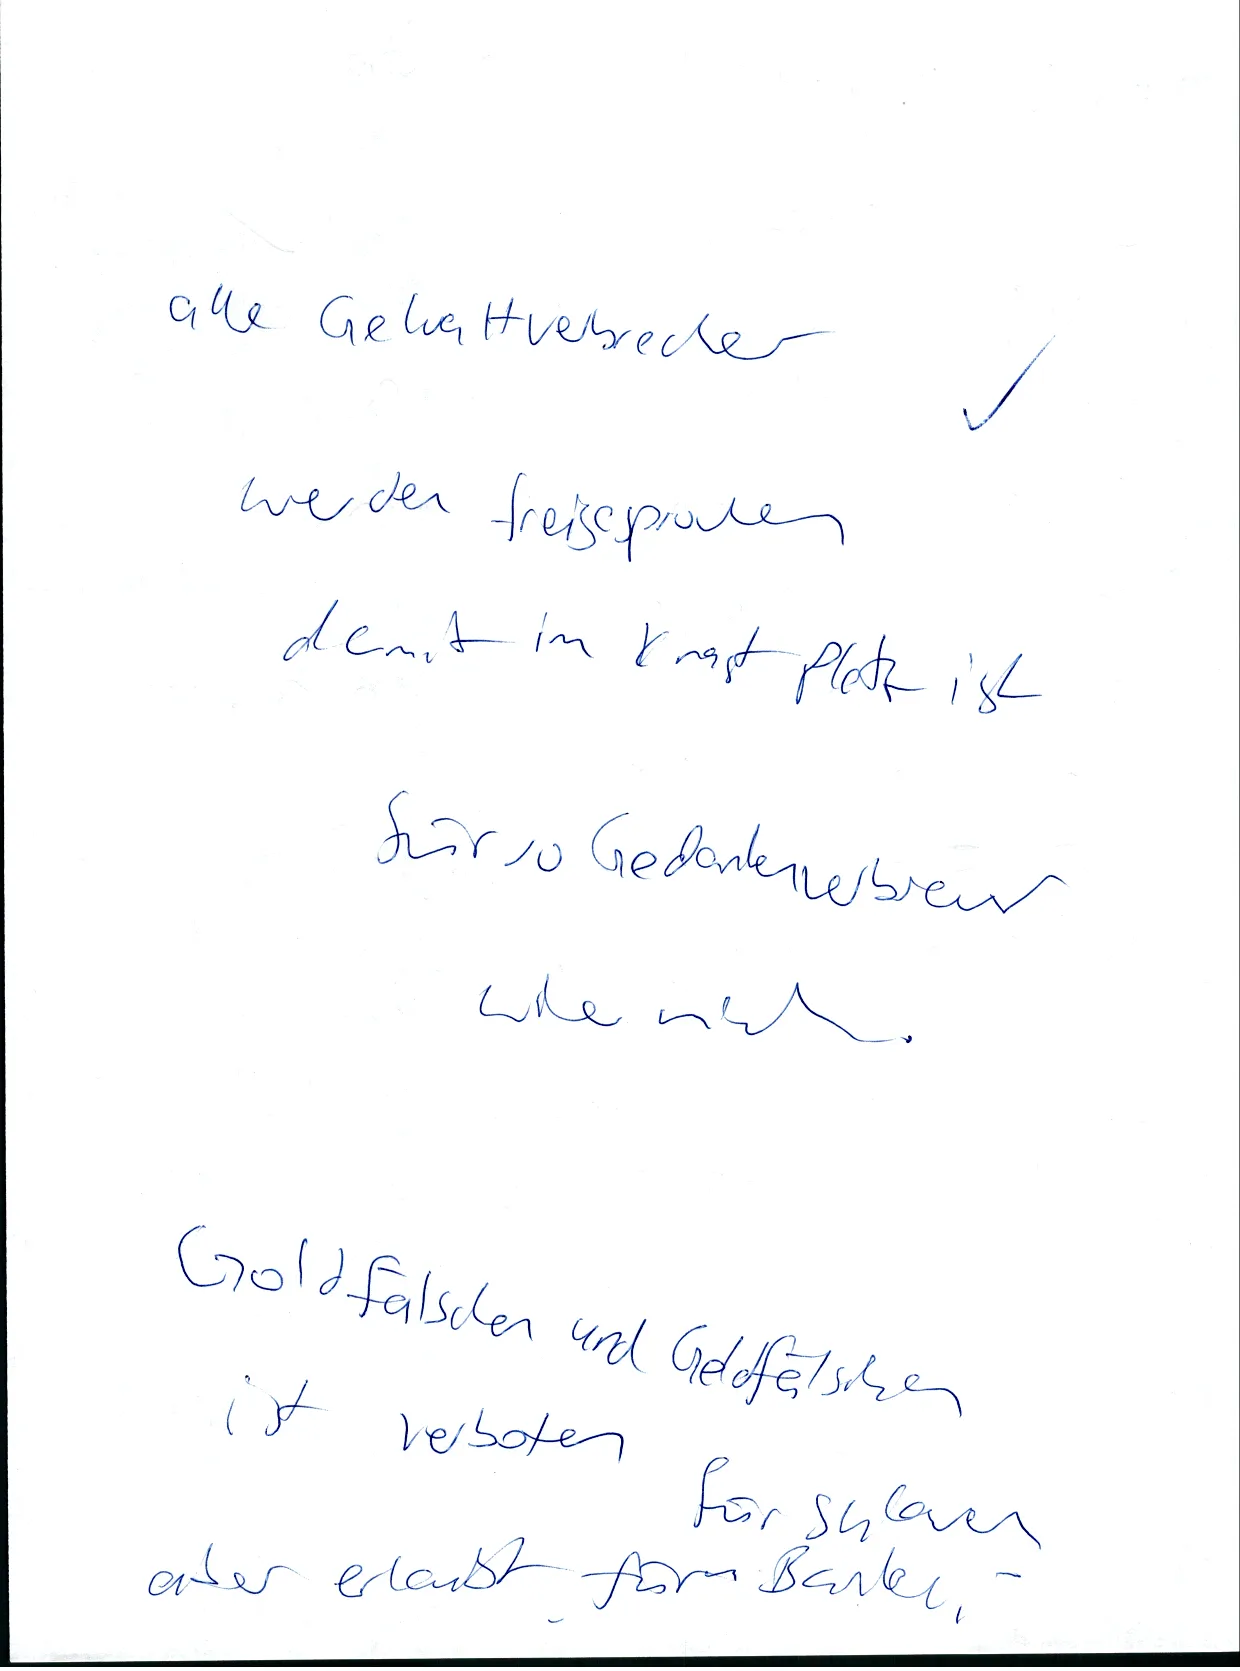 alle Gewaltverbrecher
werden freigesprochen
damit im Knast Platz ist
für so Gedankenverbrecher
wie mich.
Goldfälschen und Geldfälschen
ist verboten
für Sklaven
aber erlaubt für Banken,-